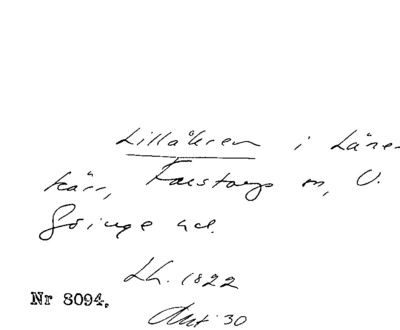 Lillåkren i Läre-
kärr, Farstorps sn, V.
Göinge hd.
Lh. 1822
Nr 8094.
Akt: 30